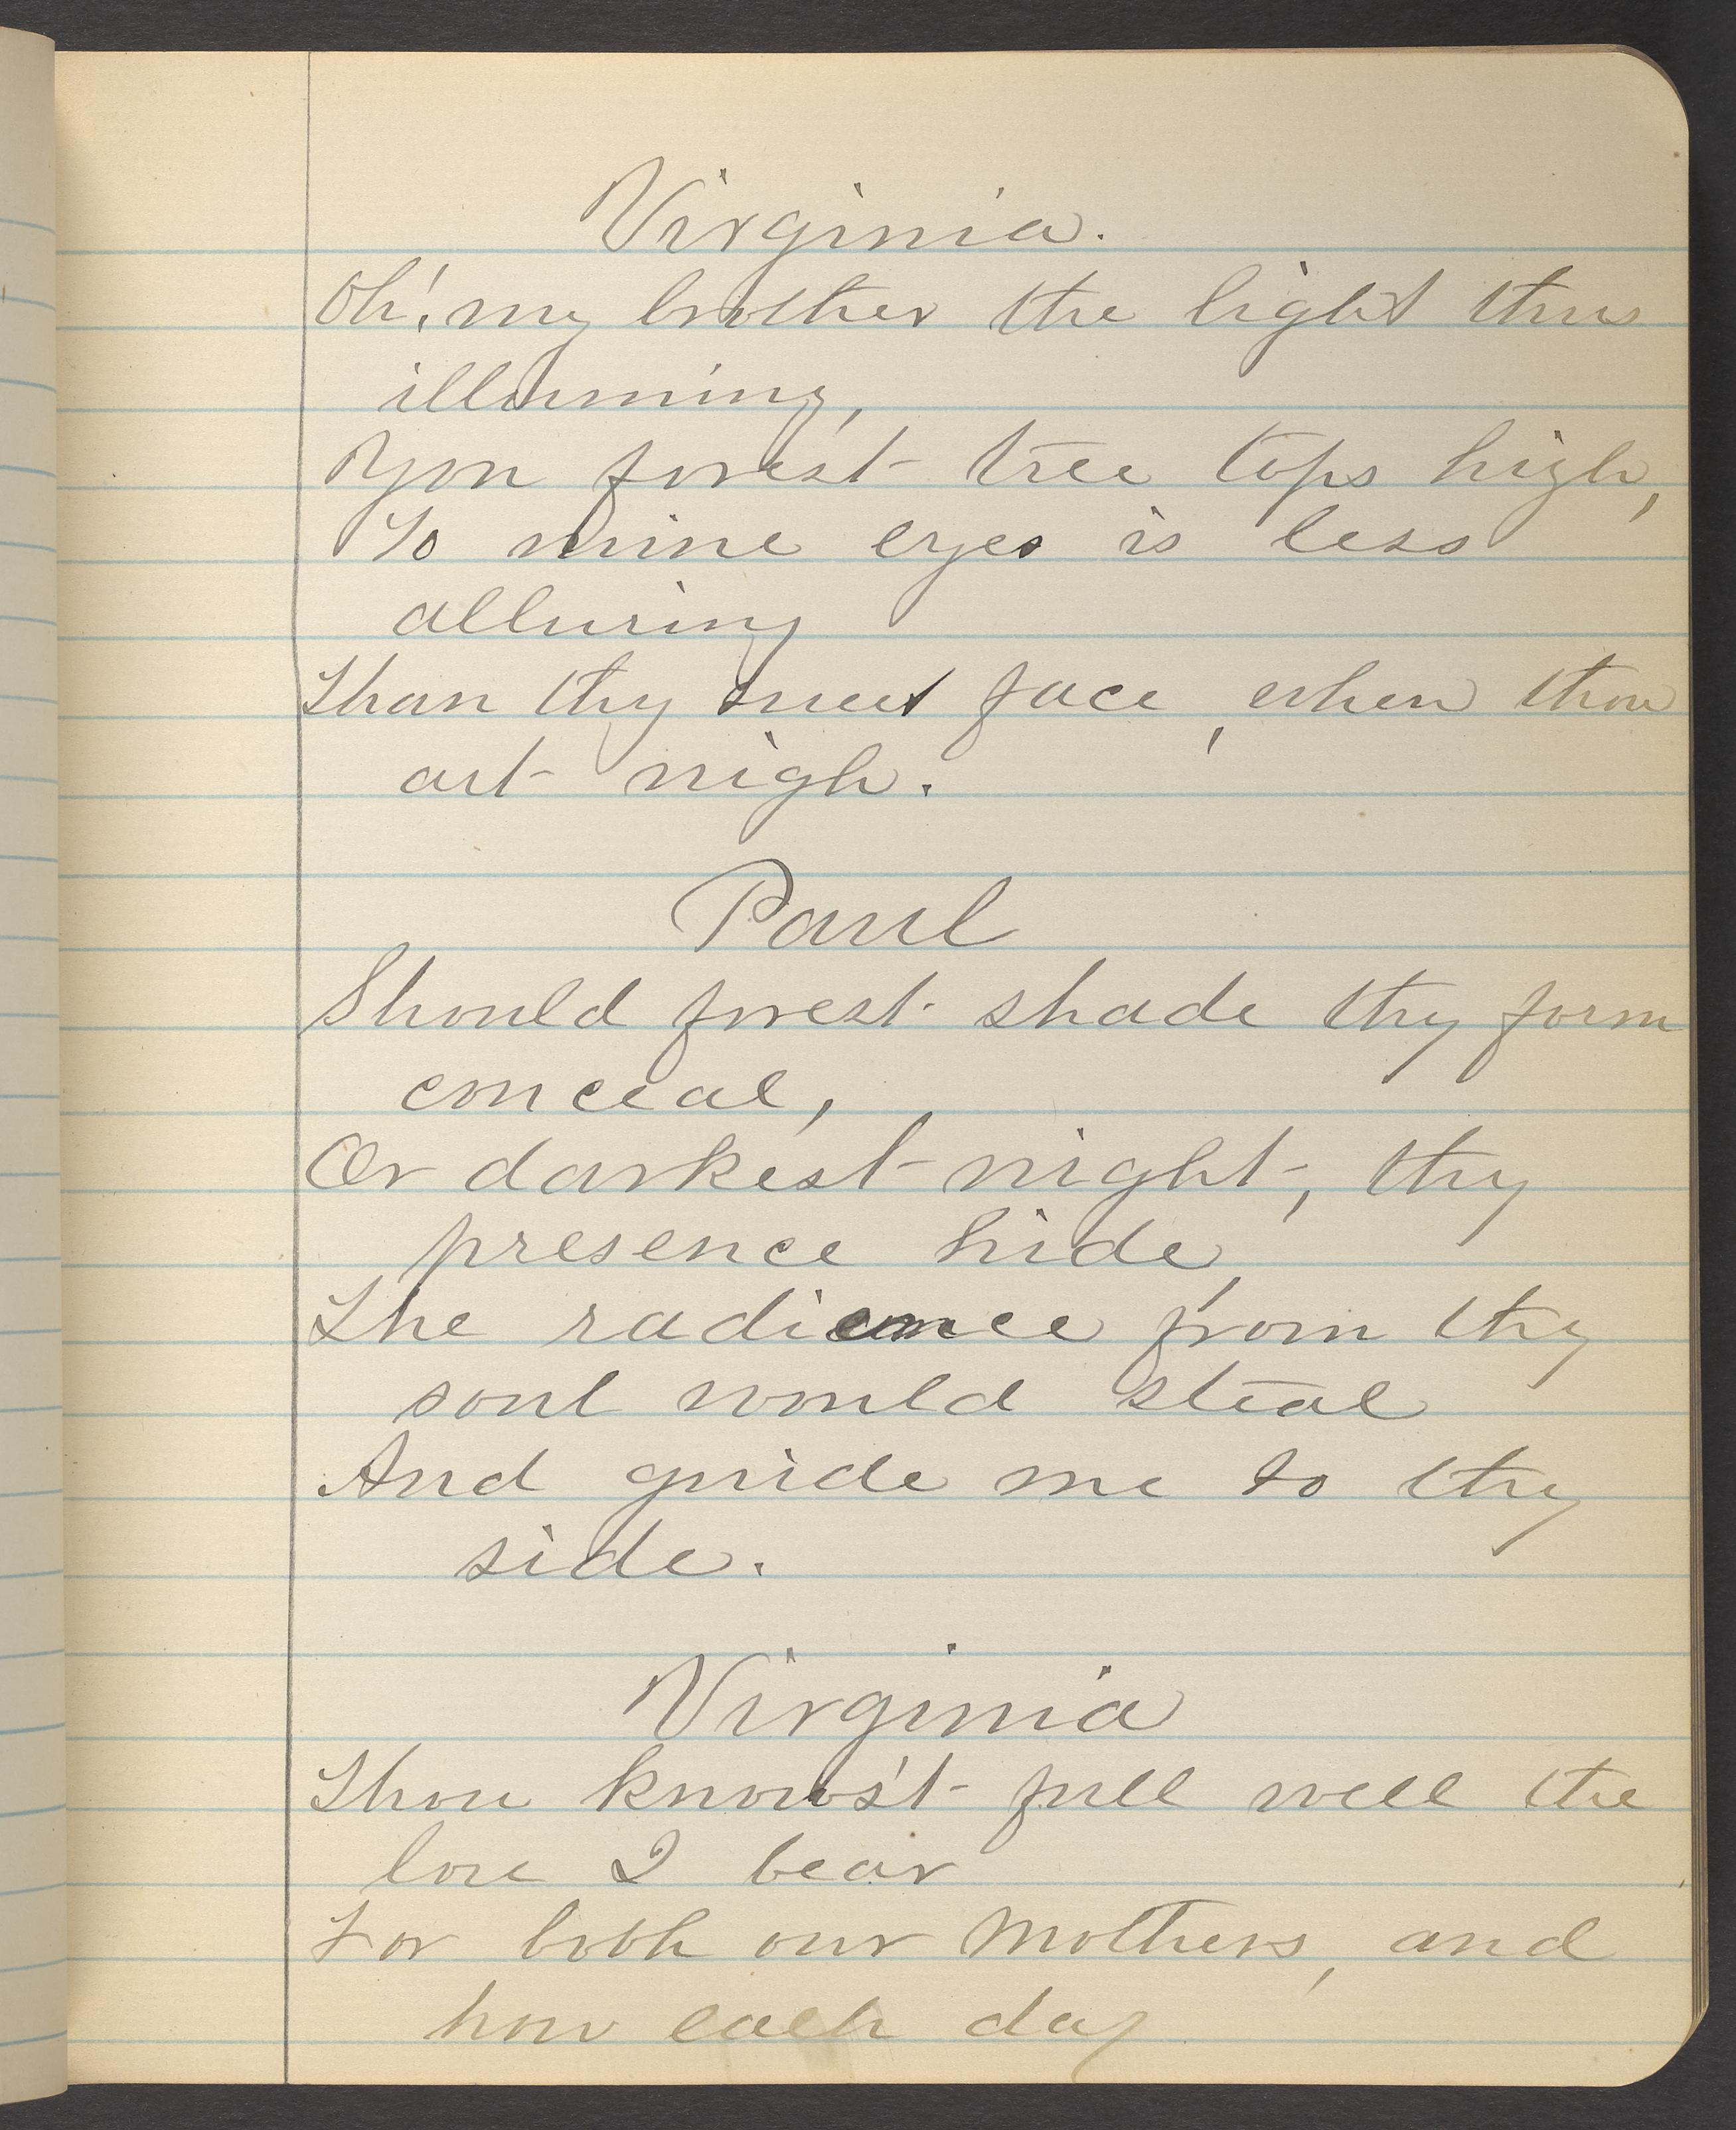 Virginia.
Oh! my brother the light thus
illuming,
Yon forest tree tops high,
To mine eyes is less
alluring
Than thy sweet face, when thou
art nigh.
Paul
Should forest shade thy form
conceal,
Or darkest night, thy
presence hide,
The radience from thy
soul would steal
And guide me to thy
side.
Virginia
Thou knows't full well the
love I bear
For both our Mothers, and
how each day